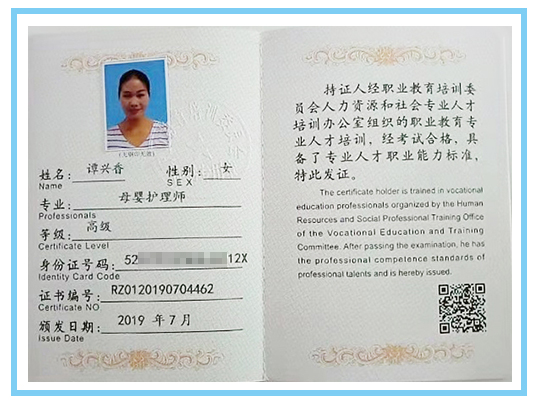 (无钢印无效)
姓名: 谭兴香 性别: 女
Name SEX
专业: 母婴护理师
Professionals
等级: 高级
Certificate Level
身份证号码: 52 12X
Identity Card Code
证书编号: RZ0120190704462
Certificate NO
颁发日期: 2019 年 7 月
Issue Date
持证人经职业教育培训委
员会人力资源和社会专业人才
培训办公室组织的职业教育专
业人才培训，经考试合格，具
备了专业人才职业能力标准，
特此发证。
The certificate holder is trained in vocational
education professionals organized by the Human
Resources and Social Professional Training Office
of the Vocational Education and Training
Committee. After passing the examination, he has
the professional competence standards of
professional talents and is hereby issued.